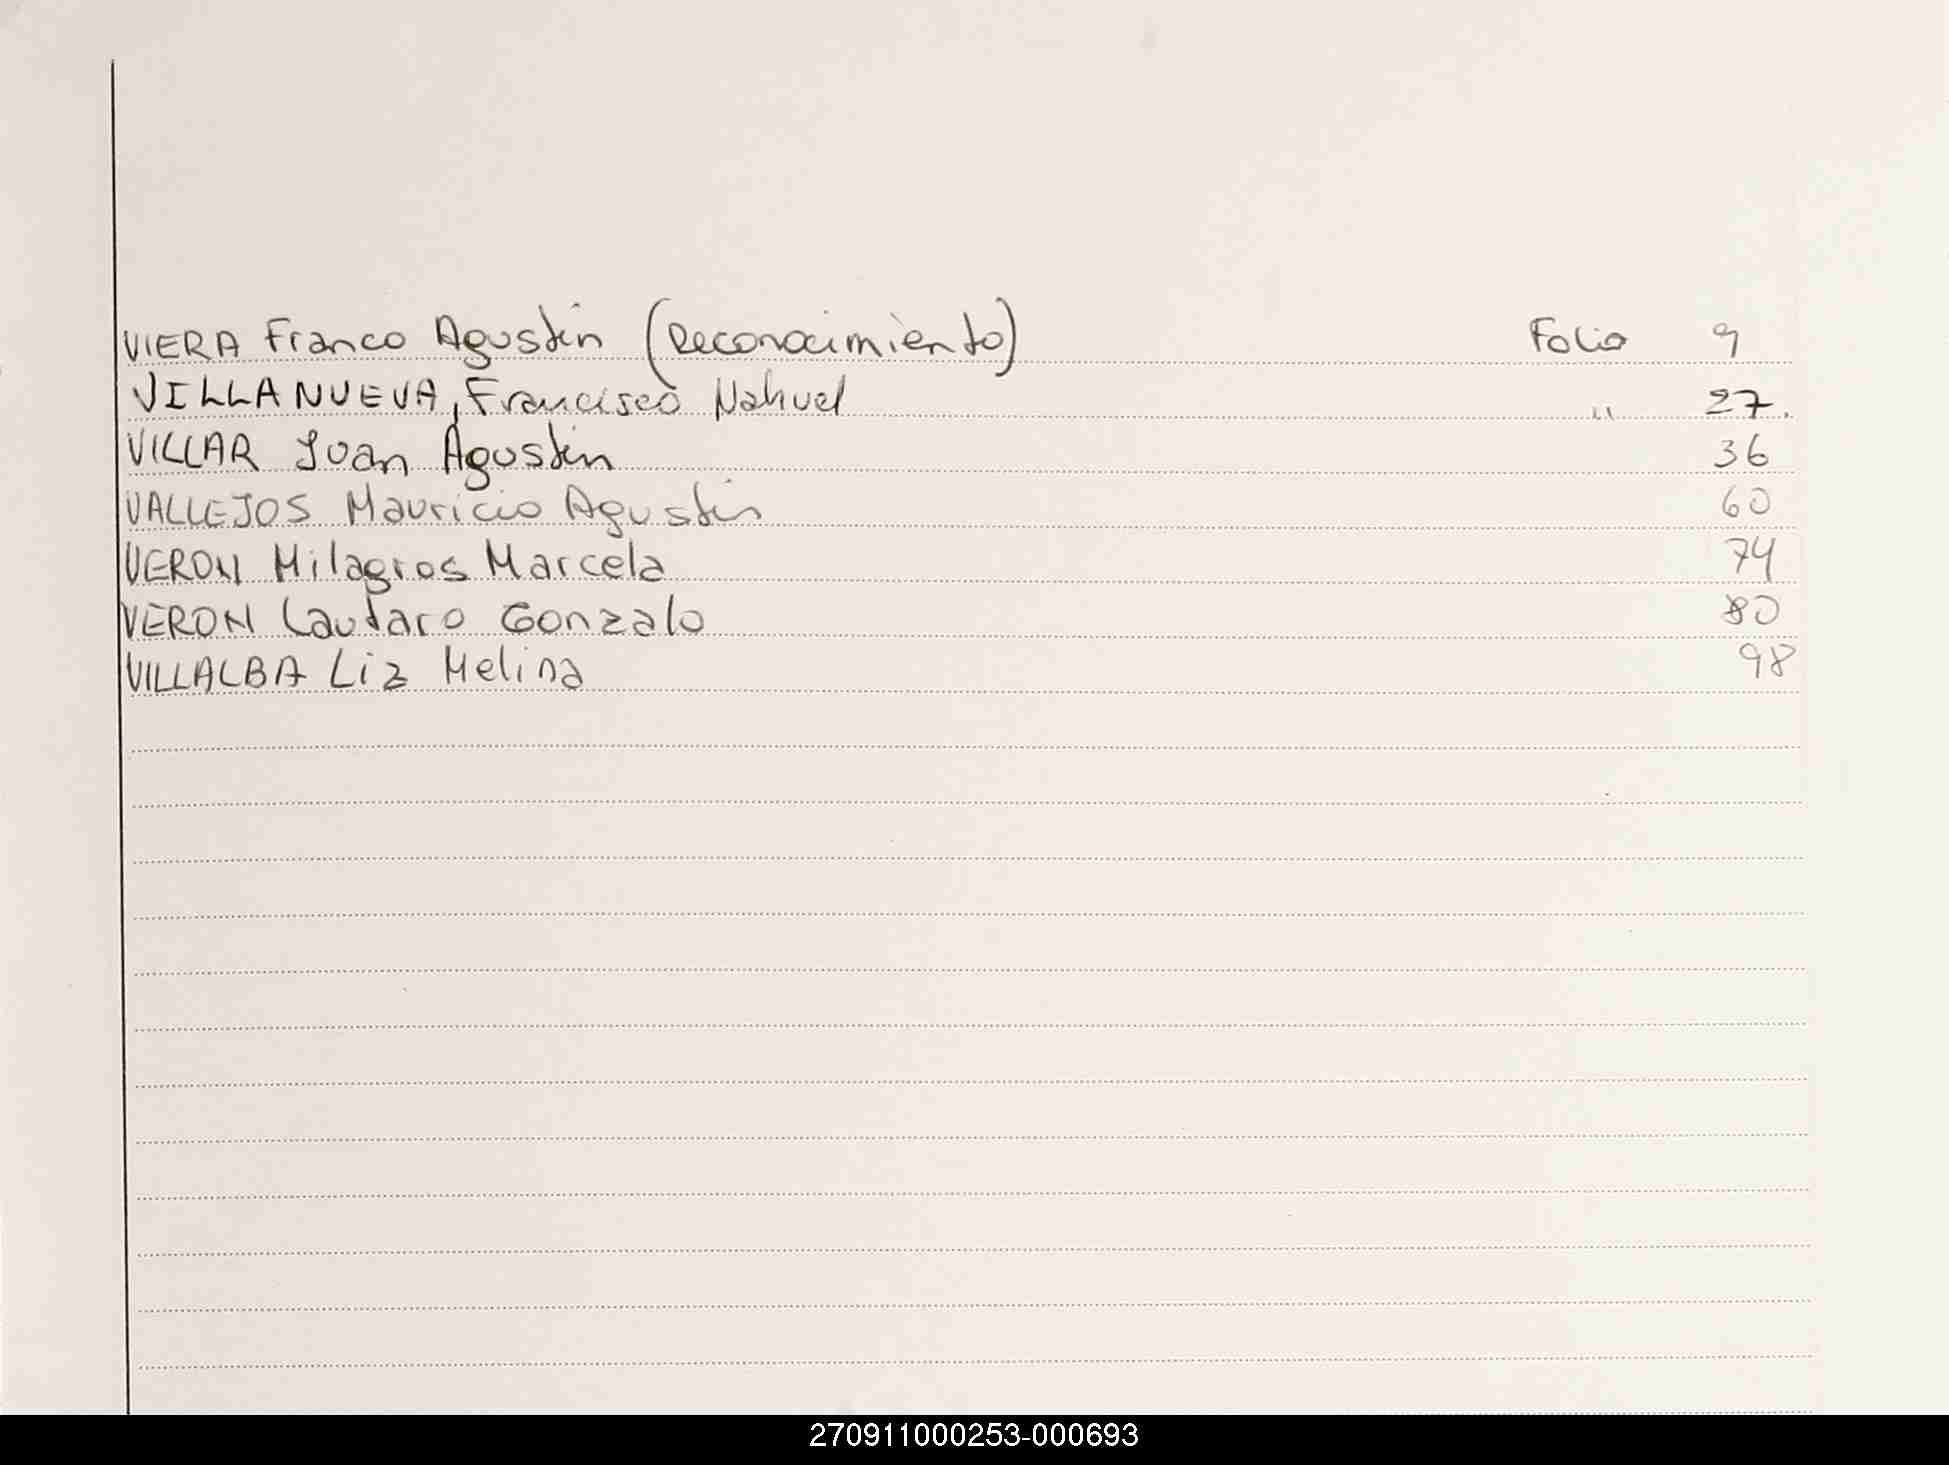 VIERA Franco Agustin (Reconocimiento) Folio 9
VILLANUEVA, Francisco Nahuel " 27.
VILLAR Juan Agustin 36
VALLEJOS Mauricio Agustin 60
VERON Milagros Marcela 74
VERON Lautaro Gonzalo 80
VILLALBA Liz Melina 98
270911000253-000693